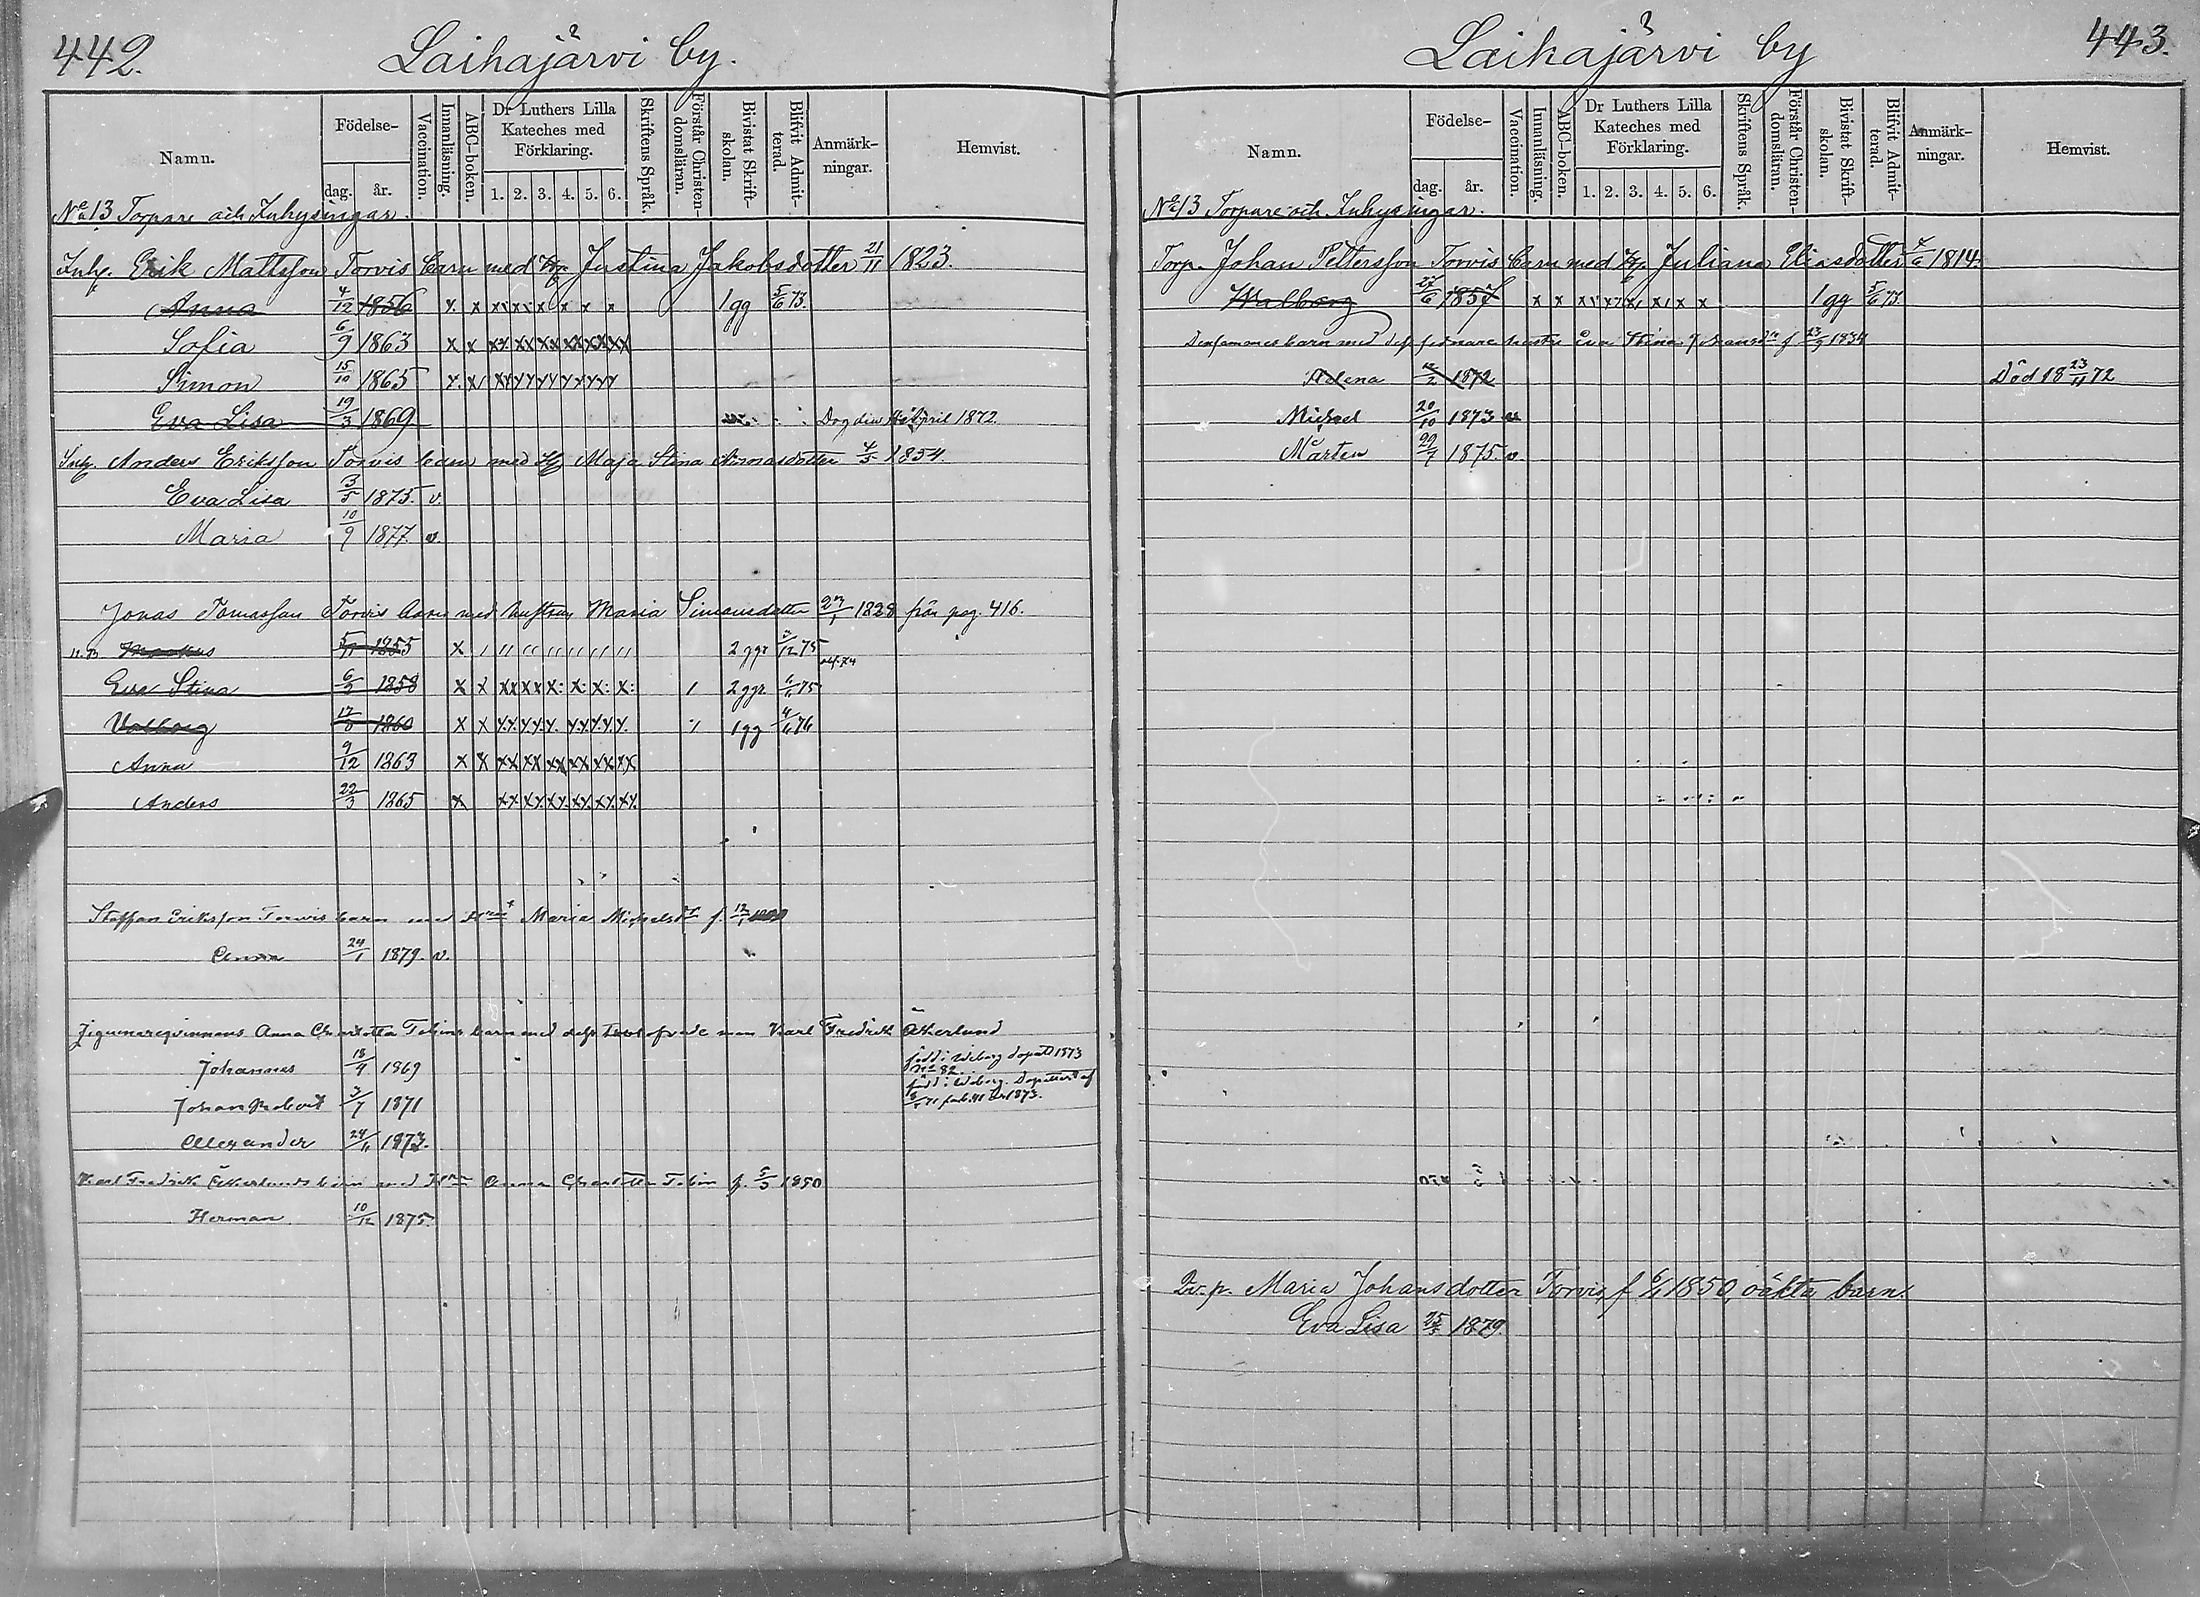 442.
Laihajärvi by.
Namn.
Födelse-
dag. år.
Vaccination.
Innanläsning.
ABC-boken.
Dr Luthers Lilla Kateches med Förklaring.
1. 2. 3. 4. 5. 6.
Skriftens Språk.
Förstår Christendomsläran.
Bivistat Skriftskolan.
Blifvit Admitterad.
Anmärkningar.
Hemvist.
No 13 Torpare och Inhysingar.
Inhy. Erik Mattsson Torvis barn med Justina Jakobsdotter 21/11 1823.
Anna 4/12 1856 1 gg 5/6 73.
Sofia 6/9 1863
Simon 15/10 1865
Eva Lisa 19/3 1869 Dog den April 1872.
Inhy. Anders Eriksson Torvis barn med Maja Stina 4/5 1854.
Eva Lisa 3/5 1875. v.
Maria 10/9 1877. v.
Jonas Tomasson Torvis barn med hustrun Maria Simonsdotter 1828 från pag. 416.
5/11 1855 2 ggr 75
Eva Stina 1858 2 ggr 75
Valborg 1860 1 gg 4/6 76
Anna 9/12 1863
Anders 22/3 1865
Staffan Eriksson Torvis barn med Maria Michelsdr f.
Anna 24/1 1879. v.
Zigenareqvinnans Anna Charlotta Tobins barn med dess man Karl Fredrik Åkerlund
Johannes 18/9 1869 född i Wiborg 1873 No 82.
Johan Robert 3/7 1871 född i Wiborg. 1873.
Alexander 24/11 1873.
Karl Fredrik Åkerlunds barn med Anna Charlotta Tobin f. 5/5 1850
Herman 10/12 1875.
Laihajärvi by
443.
Namn.
Födelse-
dag. år.
Vaccination.
Innanläsning.
ABC-boken.
Dr Luthers Lilla Kateches med Förklaring.
1. 2. 3. 4. 5. 6.
Skriftens Språk.
Förstår Christendomsläran.
Bivistat Skriftskolan.
Blifvit Admitterad.
Anmärkningar.
Hemvist.
No 13 Torpare och Inhysingar.
Torp. Johan Pettersson Torvis barn med Juliana Eliasdotter 1814.
Walborg 27/6 1857 1 gg 5/6 73.
barn med hustru Eva Stina Johansdr f. 1834
Helena 1872 Död 18 23/11 72
Michel 20/10 1873 v.
Mårten 29/7 1875. v.
Maria Johansdotter Torvis, f 6/1 1850, oäkta barn.
Eva Lisa 1879.